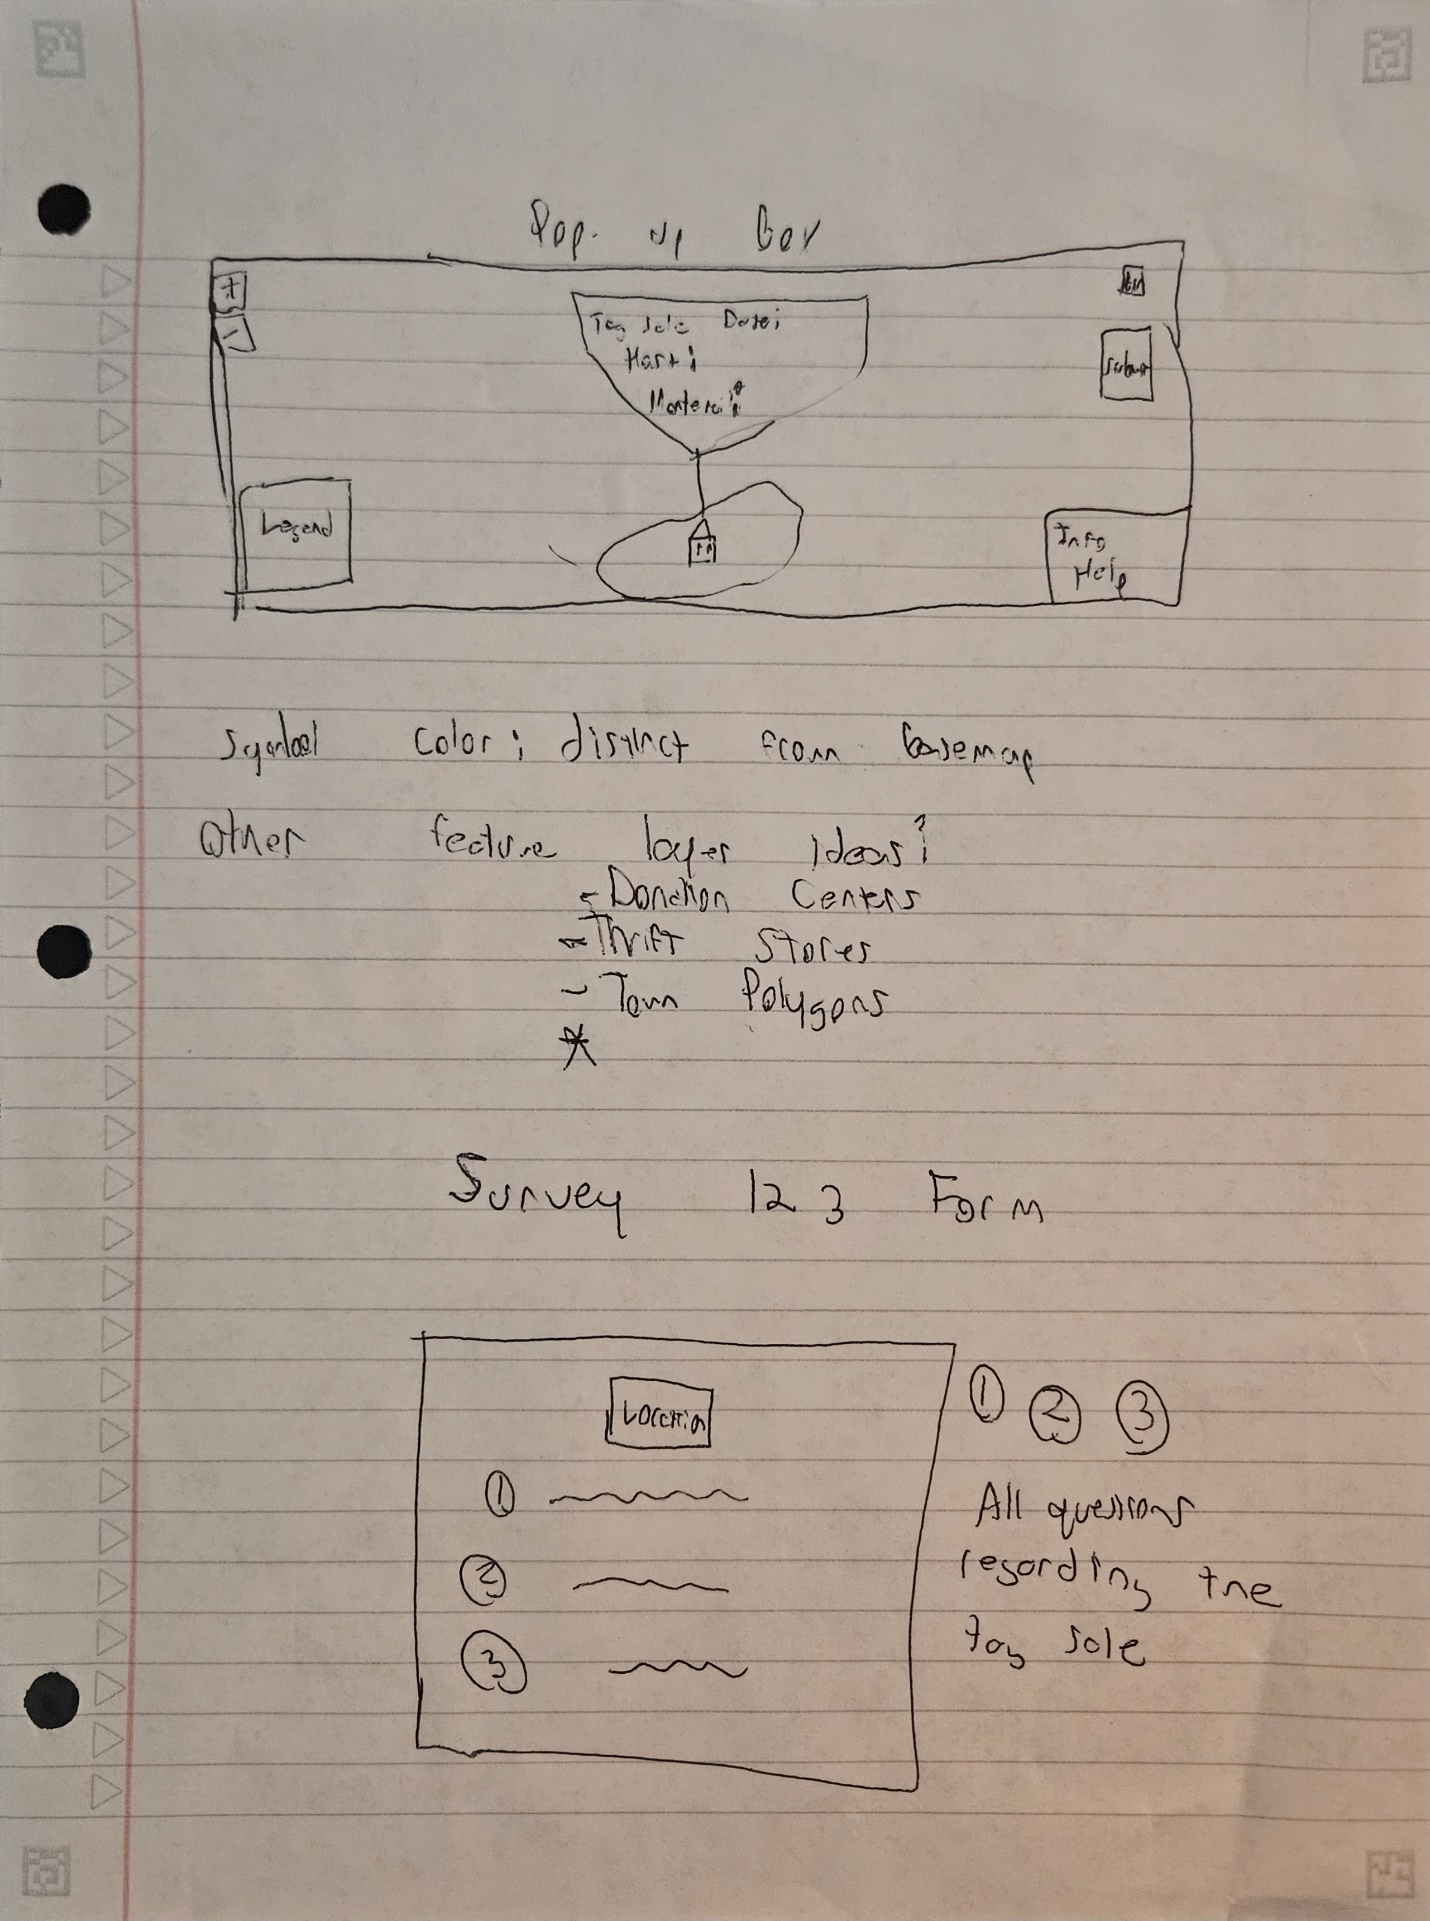 Pop-up Box
+
-
Tag sale Date:
Host:
Submit
Legend
Info
Help
Symbol color: distinct from basemap
Other feature layer ideas?
- Donation Centers
- Thrift Stores
- Town Polygons
*
Survey 123 Form
Location
① ② ③
①
All questions
②
regarding the
③
tag sale